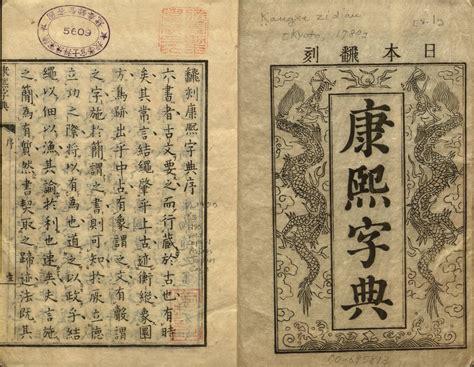 日本飜刻
康熙字典
飜刻康熙字典序
六書者古文要之而行藏於古也有時
矣其常言結繩肇乎上古迹衡縱象圓
方爲跡出乎中古有像謂之文有謂
之字施於簡謂之書則可知於厥立德
立功之際將以有爲也道之以政乎結
繩以佃以漁其諭於利也速矣矢言施
之簡爲有然書契取之迹法既其
康熙字典
序
5609